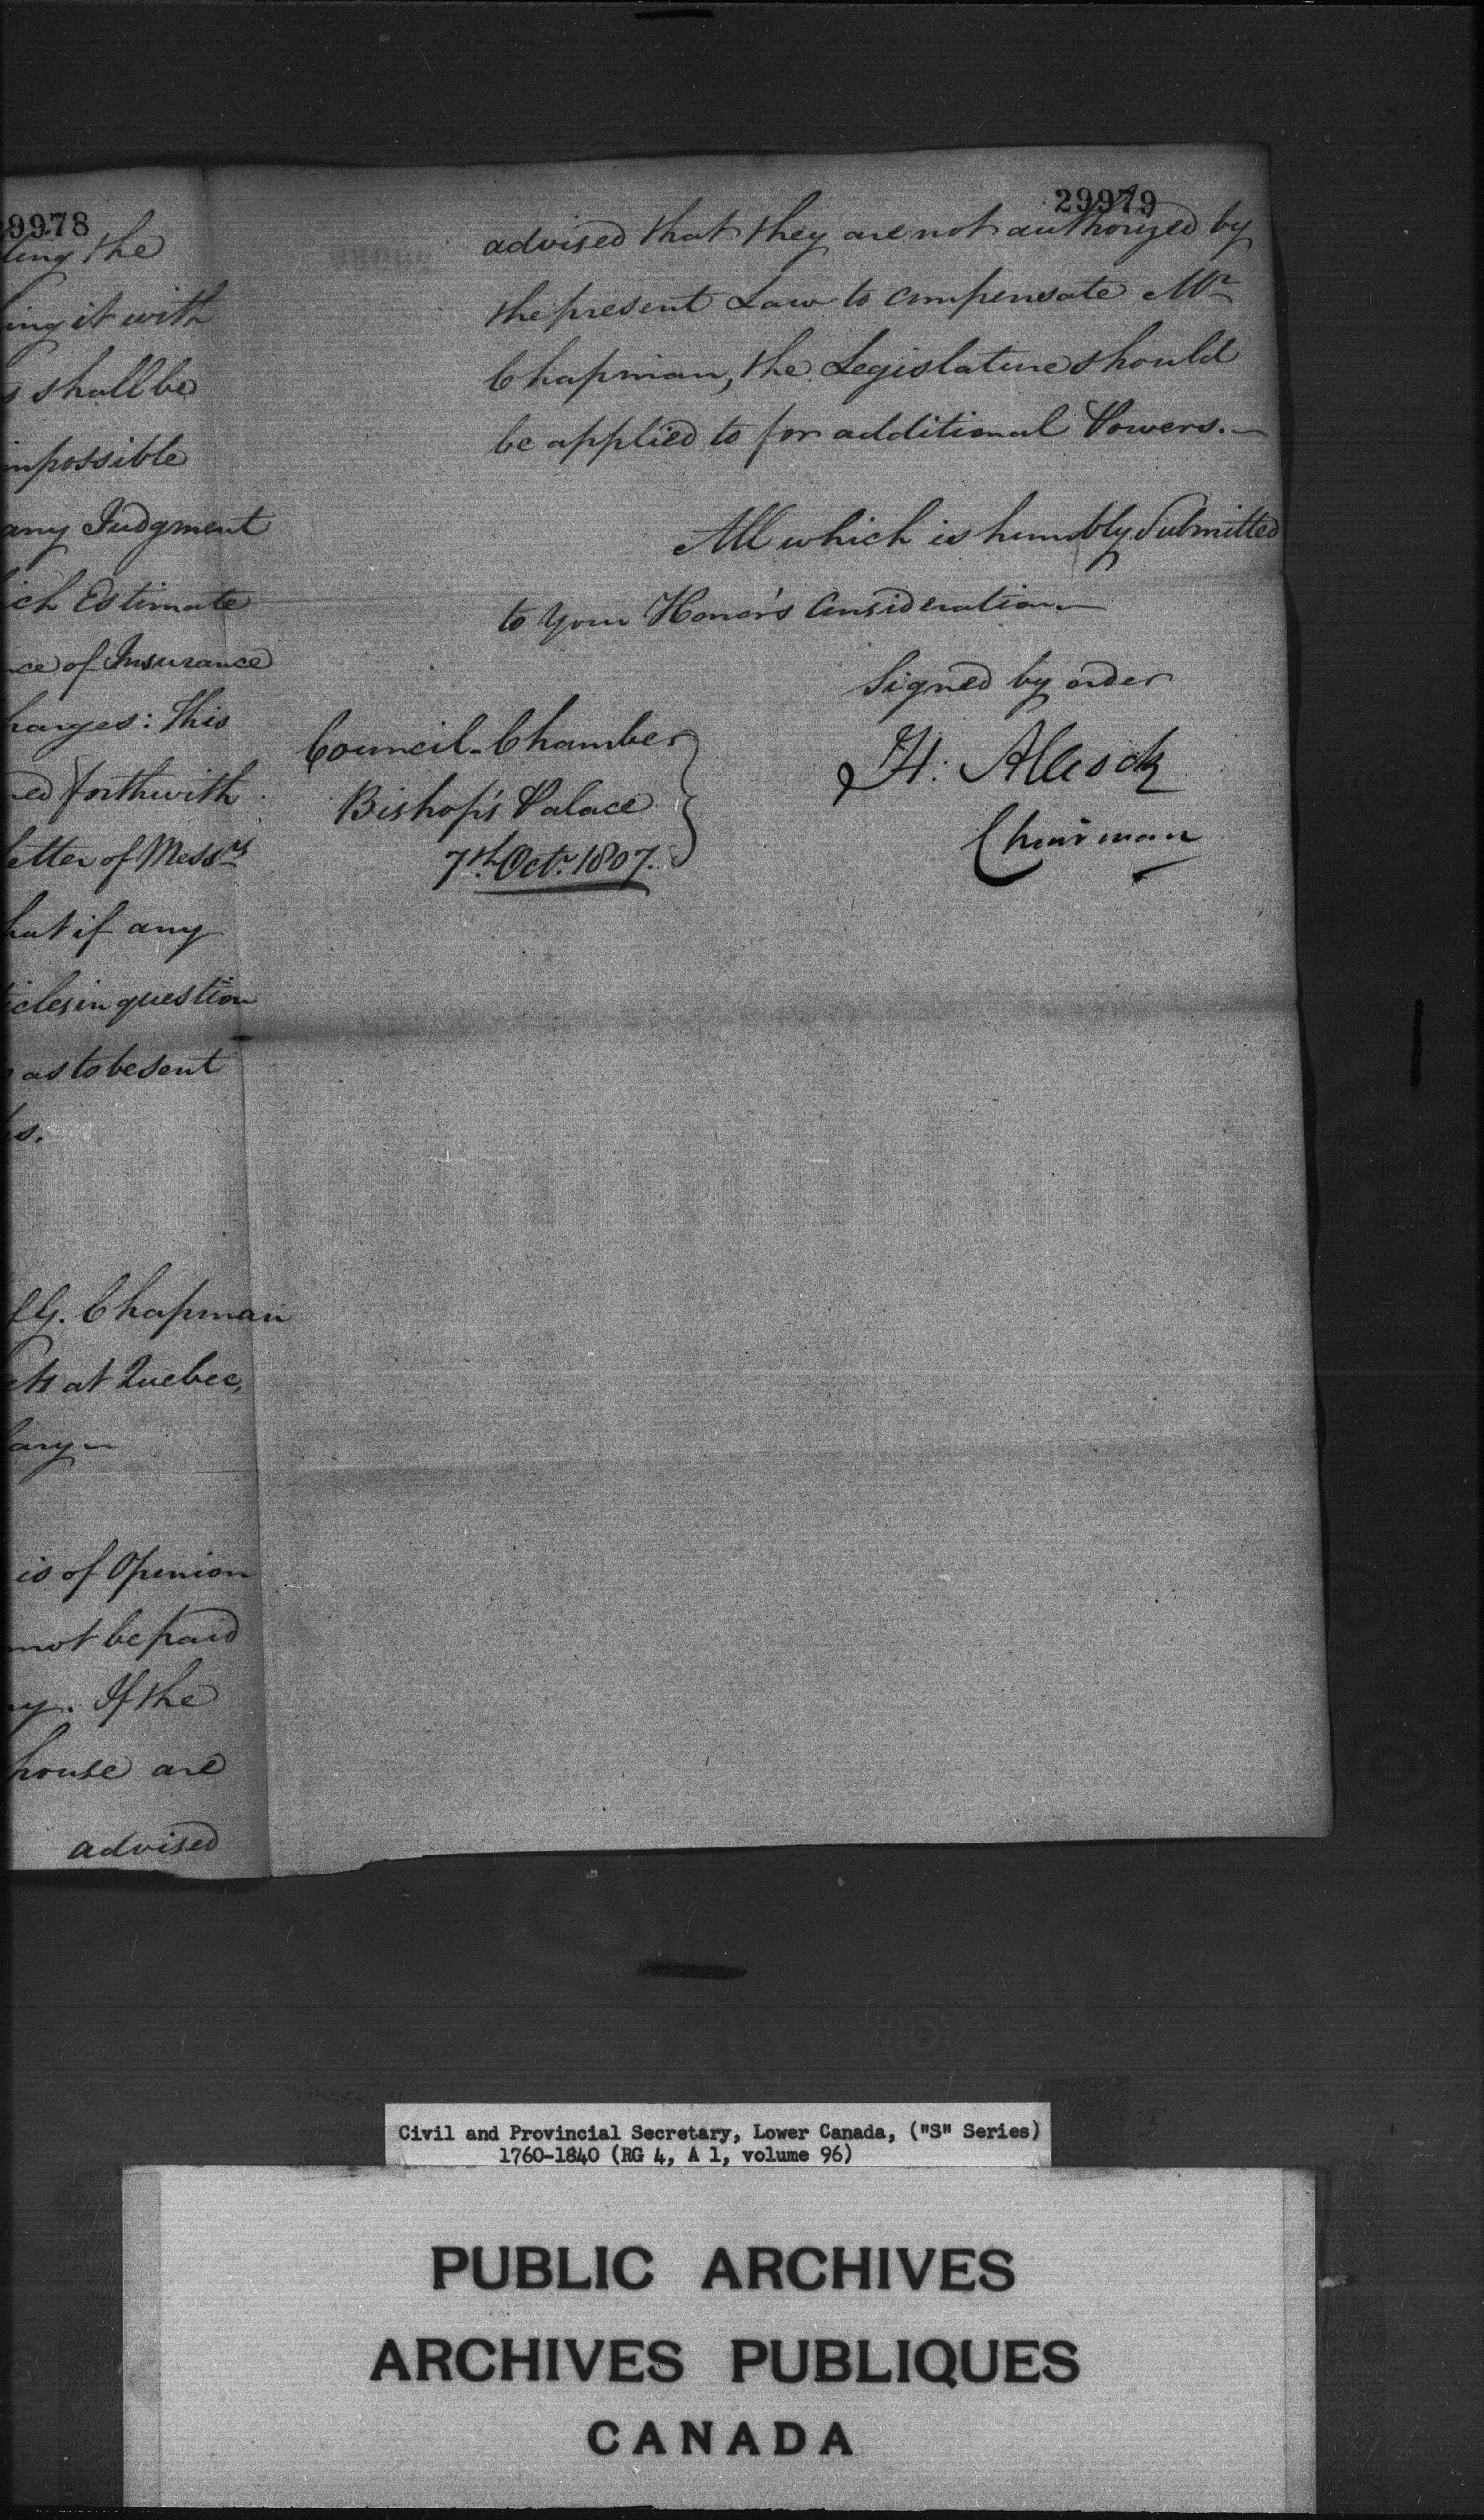 29978
ling the
ing it with
s shall be
mpossible
any Judgment
ich Estimate
nce of Insurance
harges: This
ned forthwith
letter of Messrs
hat if any
icles in question
as to be sent
hs.
G. Chapman
cts at Quebec,
ary
is of Opinion
not be paid
ry. If the
house are
advised
29979
advised that they are not authorized by
the present Law to compensate Mr
Chapman, the Legislature should
be applied to for additional Powers.—
All which is humbly Submitted
to Your Honor's Consideration—
Signed by order
H: Allcock
Chairman
Council-Chamber
Bishop's Palace
7th. Octr. 1807.
Civil and Provincial Secretary, Lower Canada, ("S" Series)
1760-1840 (RG 4, A 1, volume 96)
PUBLIC ARCHIVES
ARCHIVES PUBLIQUES
CANADA